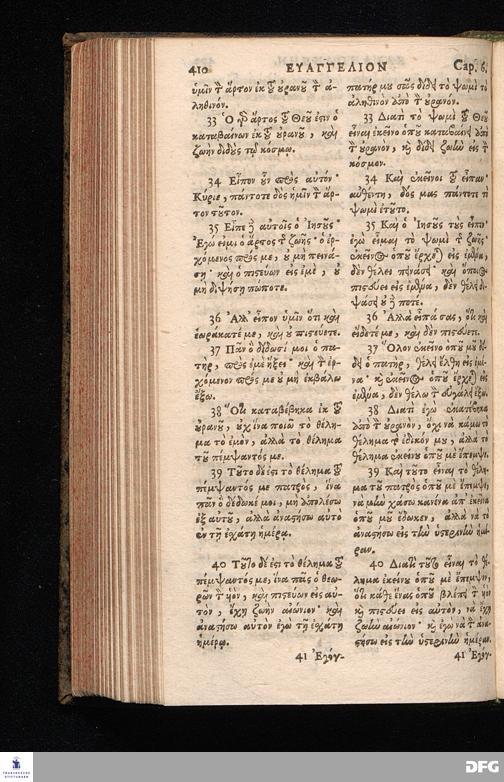 410 ΕΥΑΓΓΕΛΙΟΝ Cap. 6.
ὑμῖν τ̀ ἄρτον ἐκ τȣ͂ ȣ̓ρανȣ͂ τ̀ ἀ-
ληθινόν.
33 Ὁ γὰρ ἄρτος τȣ͂ Θεȣ͂ ἐστιν ὁ
καταβαίνων ἐκ τȣ͂ ȣ̓ρανȣ͂, καὶ
ζωὴν διδȣ̀ς τῷ κόσμῳ.
34 Εἶπον ȣ̓͂ν πρὸς αὐτόν·
Κύριε, πάντοτε δὸς ἡμῖν τ̀ ἄρ-
τον τȣ͂τον.
35 Εἶπε δὲ αὐτοῖς ὁ Ἰησȣ͂ς·
Ἐγώ εἰμι ὁ ἄρτος τ͂ ζωῆς· ὁ ἐρ-
χόμενος πρός με, ȣ̓ μὴ πεινά-
σῃ· καὶ ὁ πιστεύων εἰς ἐμὲ, ȣ̓
μὴ διψήσῃ πώποτε.
36 Ἀλλ' εἶπον ὑμῖν ὅτι καὶ
ἑωράκατέ με, καὶ ȣ̓ πιστεύετε.
37 Πᾶν ὃ δίδωσί μοι ὁ πα-
τὴρ, πρὸς ἐμὲ ἥξει· καὶ τ̀ ἐρ-
χόμενον πρός με ȣ̓ μὴ ἐκβάλω
ἔξω.
38 Ὅτι καταβέβηκα ἐκ τȣ͂
ȣ̓ρανȣ͂, ȣ̓χ ἵνα ποιῶ τὸ θέλη-
μα τὸ ἐμὸν, ἀλλὰ τὸ θέλημα
τȣ͂ πέμψαντός με.
39 Τȣ͂το δέ ἐστι τὸ θέλημα τȣ͂
πέμψαντός με πατρὸς, ἵνα
πᾶν ὃ δέδωκέ μοι, μὴ ἀπολέσω
ἐξ αὐτȣ͂, ἀλλὰ ἀναστήσω αὐτὸ
ἐν τῇ ἐσχάτῃ ἡμέρᾳ.
40 Τȣ͂το δέ ἐστι τὸ θέλημα τȣ͂
πέμψαντός με, ἵνα πᾶς ὁ θεω-
ρῶν τ̀ υἱὸν, καὶ πιστεύων εἰς αὐ-
τὸν, ἔχῃ ζωὴν αἰώνιον· καὶ
ἀναστήσω αὐτὸν ἐγὼ τῇ ἐσχάτῃ
ἡμέρᾳ.
41 Ἐγόγ-
πατήρ μȣ σᾶς δίδει τὸ ψωμὶ τὸ
ἀληθινὸν ἀπὸ τ̀ ȣ̓ρανόν.
33 Διατὶ τὸ ψωμὶ τȣ͂ Θεȣ͂
εἶναι ἐκεῖνο ὁπȣ͂ καταβαίνει ἀπὸ
τ̀ ȣ̓ρανὸν, καὶ δίδει ζωὴν εἰς τ̀
κόσμον.
34 Καὶ ἐκεῖνοι τȣ͂ εἶπαν·
αὐθέντη, δός μας πάντοτε τὸ
ψωμὶ ἐτȣ͂το.
35 Καὶ ὁ Ἰησȣ͂ς τȣ̀ς εἶπε·
ἐγὼ εἶμαι τὸ ψωμὶ τ͂ ζωῆς·
ἐκεῖνος ὁπȣ͂ ἔρχεται εἰς ἐμένα,
δὲν θέλει πεινάσῃ· καὶ ὁποιος
πιστεύει εἰς ἐμένα, δὲν θέλει δι-
ψάσῃ ποτέ.
36 Ἀλλὰ εἶπά σας, ὅτι καὶ
εἴδετέ με, καὶ δὲν πιστεύετε.
37 Ὅλον ἐκεῖνο ὁπȣ͂ μȣ͂ δί-
δει ὁ πατὴρ, θέλει ἔλθῃ εἰς ἐμέ-
να· καὶ ἐκεῖνος ὁπȣ͂ ἔρχεται εἰς
ἐμένα, δὲν θέλω τ̀ εὐγάλῃ ἔξω.
38 Διατὶ ἐγὼ ἐκατέβηκα
ἀπὸ τ̀ ȣ̓ρανὸν, ὄχι νὰ κάμω τὸ
θέλημα τ̀ ἐδικόν μȣ, ἀλλὰ τὸ
θέλημα ἐκείνȣ ὁπȣ͂ μὲ ἔπεμψε.
39 Καὶ τȣ͂το εἶναι τὸ θέλη-
μα τȣ͂ πατρὸς ὁπȣ͂ μὲ ἔπεμψε,
νὰ μὴν χάσω κανένα ἀπ' ἐκεῖνα
ὁπȣ͂ μȣ͂ ἔδωκεν, ἀλλὰ νὰ τὸ
ἀναστήσω εἰς τὴν ὑστερινὴν ἡμέ-
ραν.
40 Διατὶ τȣ͂το εἶναι τὸ θέ-
λημα ἐκείνȣ ὁπȣ͂ μὲ ἔπεμψεν,
ὅτι κάθε ἕνας ὁπȣ͂ βλέπει τ̀ υἱὸν
καὶ πιστεύει εἰς αὐτὸν, νὰ ἔχῃ
ζωὴν αἰώνιον· καὶ ἐγὼ νὰ τ̀ ἀνα-
στήσω εἰς τὴν ὑστερινὴν ἡμέραν.
41 Ἐγόγ-
FRANCKESCHE
STIFTUNGEN
DFG